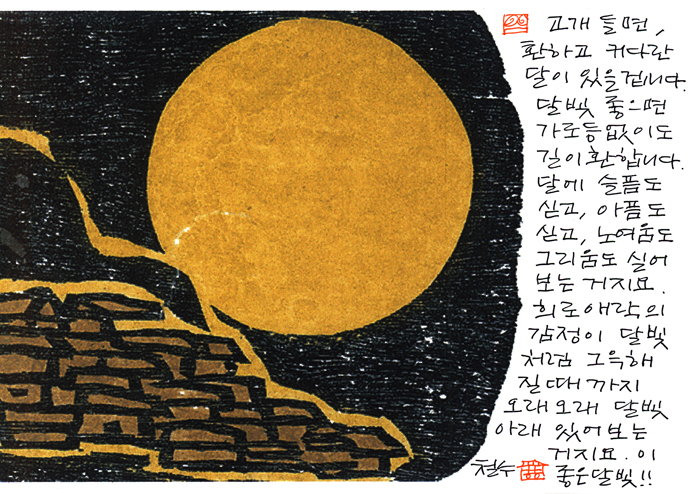 고개 들면,
환하고 커다란
달이 있을겁니다.
달빛 좋으면
가로등없이도
길이환합니다.
달에 슬픔도
싣고, 아픔도
싣고, 노여움도
그리움도 실어
보는거지요.
희로애락의
감정이 달빛
처럼 그윽해
질때까지
오래오래 달빛
아래 있어보는
거지요. 이
좋은달빛!!
철수